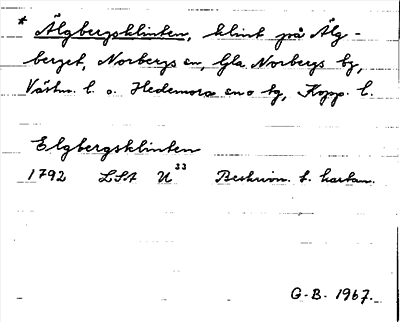 * Älgbergsklinten, klint på Älg-
berget, Norbergs sn, Gla Norbergs bg,
Västm. l. o. Hedemora sn o bg, Kopp. l.
Elgbergsklinten
1792 LSA U 33 Beskrivn. t. kartan.
G. B. 1967.